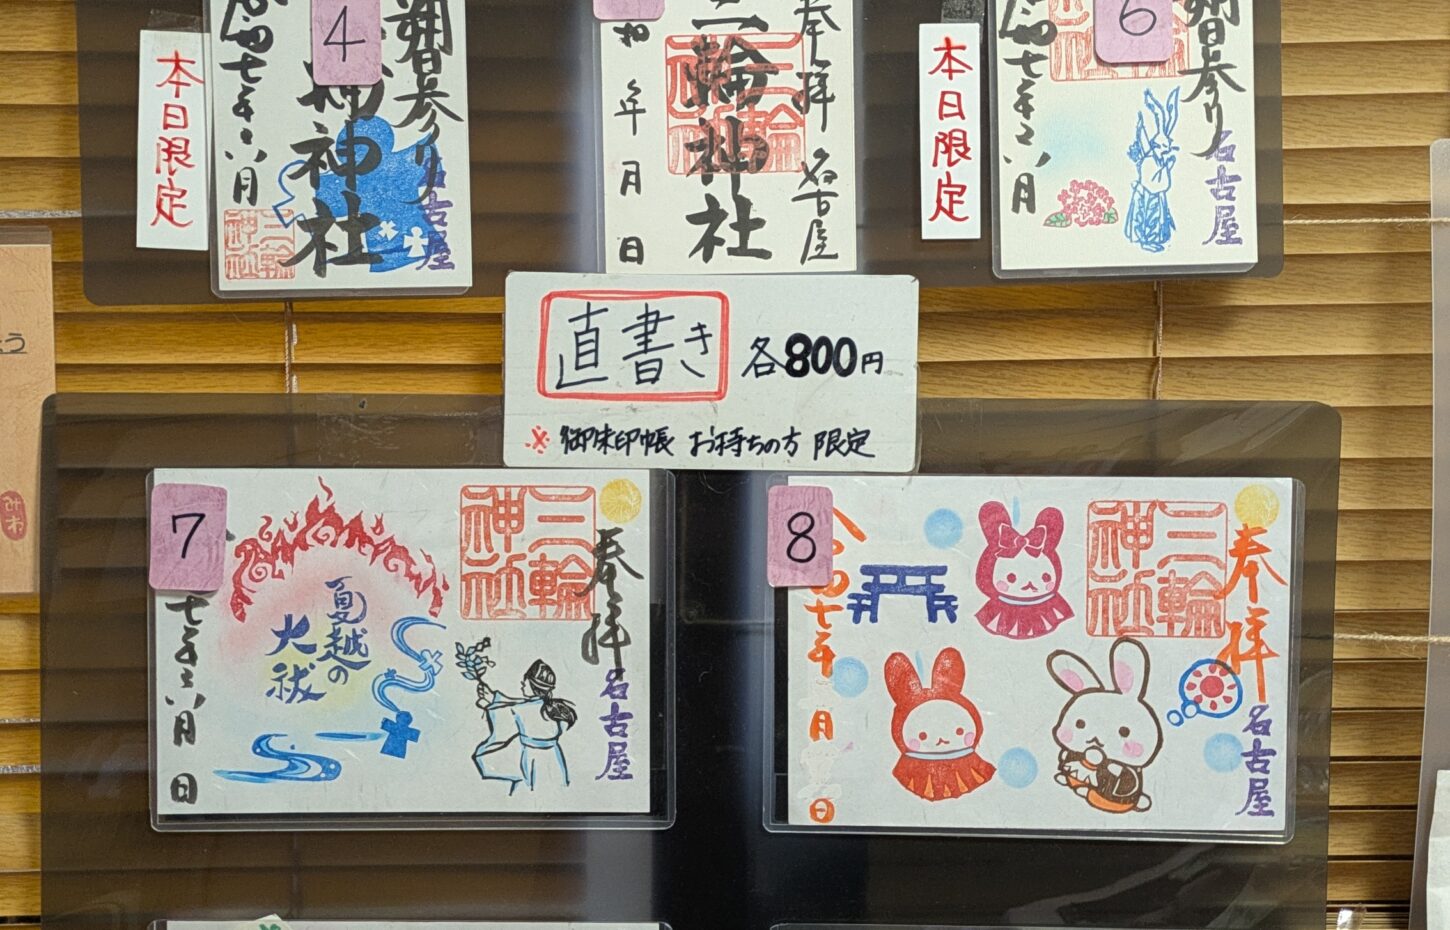 4
朔日参り
名古屋
神社
三輪神社
七年六月
本日限定
奉拝
名古屋
三輪神社
三輪神社
和 年 月 日
6
朔日参り
名古屋
七年六月
本日限定
直書き 各800円
※御朱印帳 お持ちの方 限定
7
奉拝
名古屋
三輪神社
夏越の
大祓
七年六月 日
8
奉拝
名古屋
三輪神社
令和七年 月 日
みわ